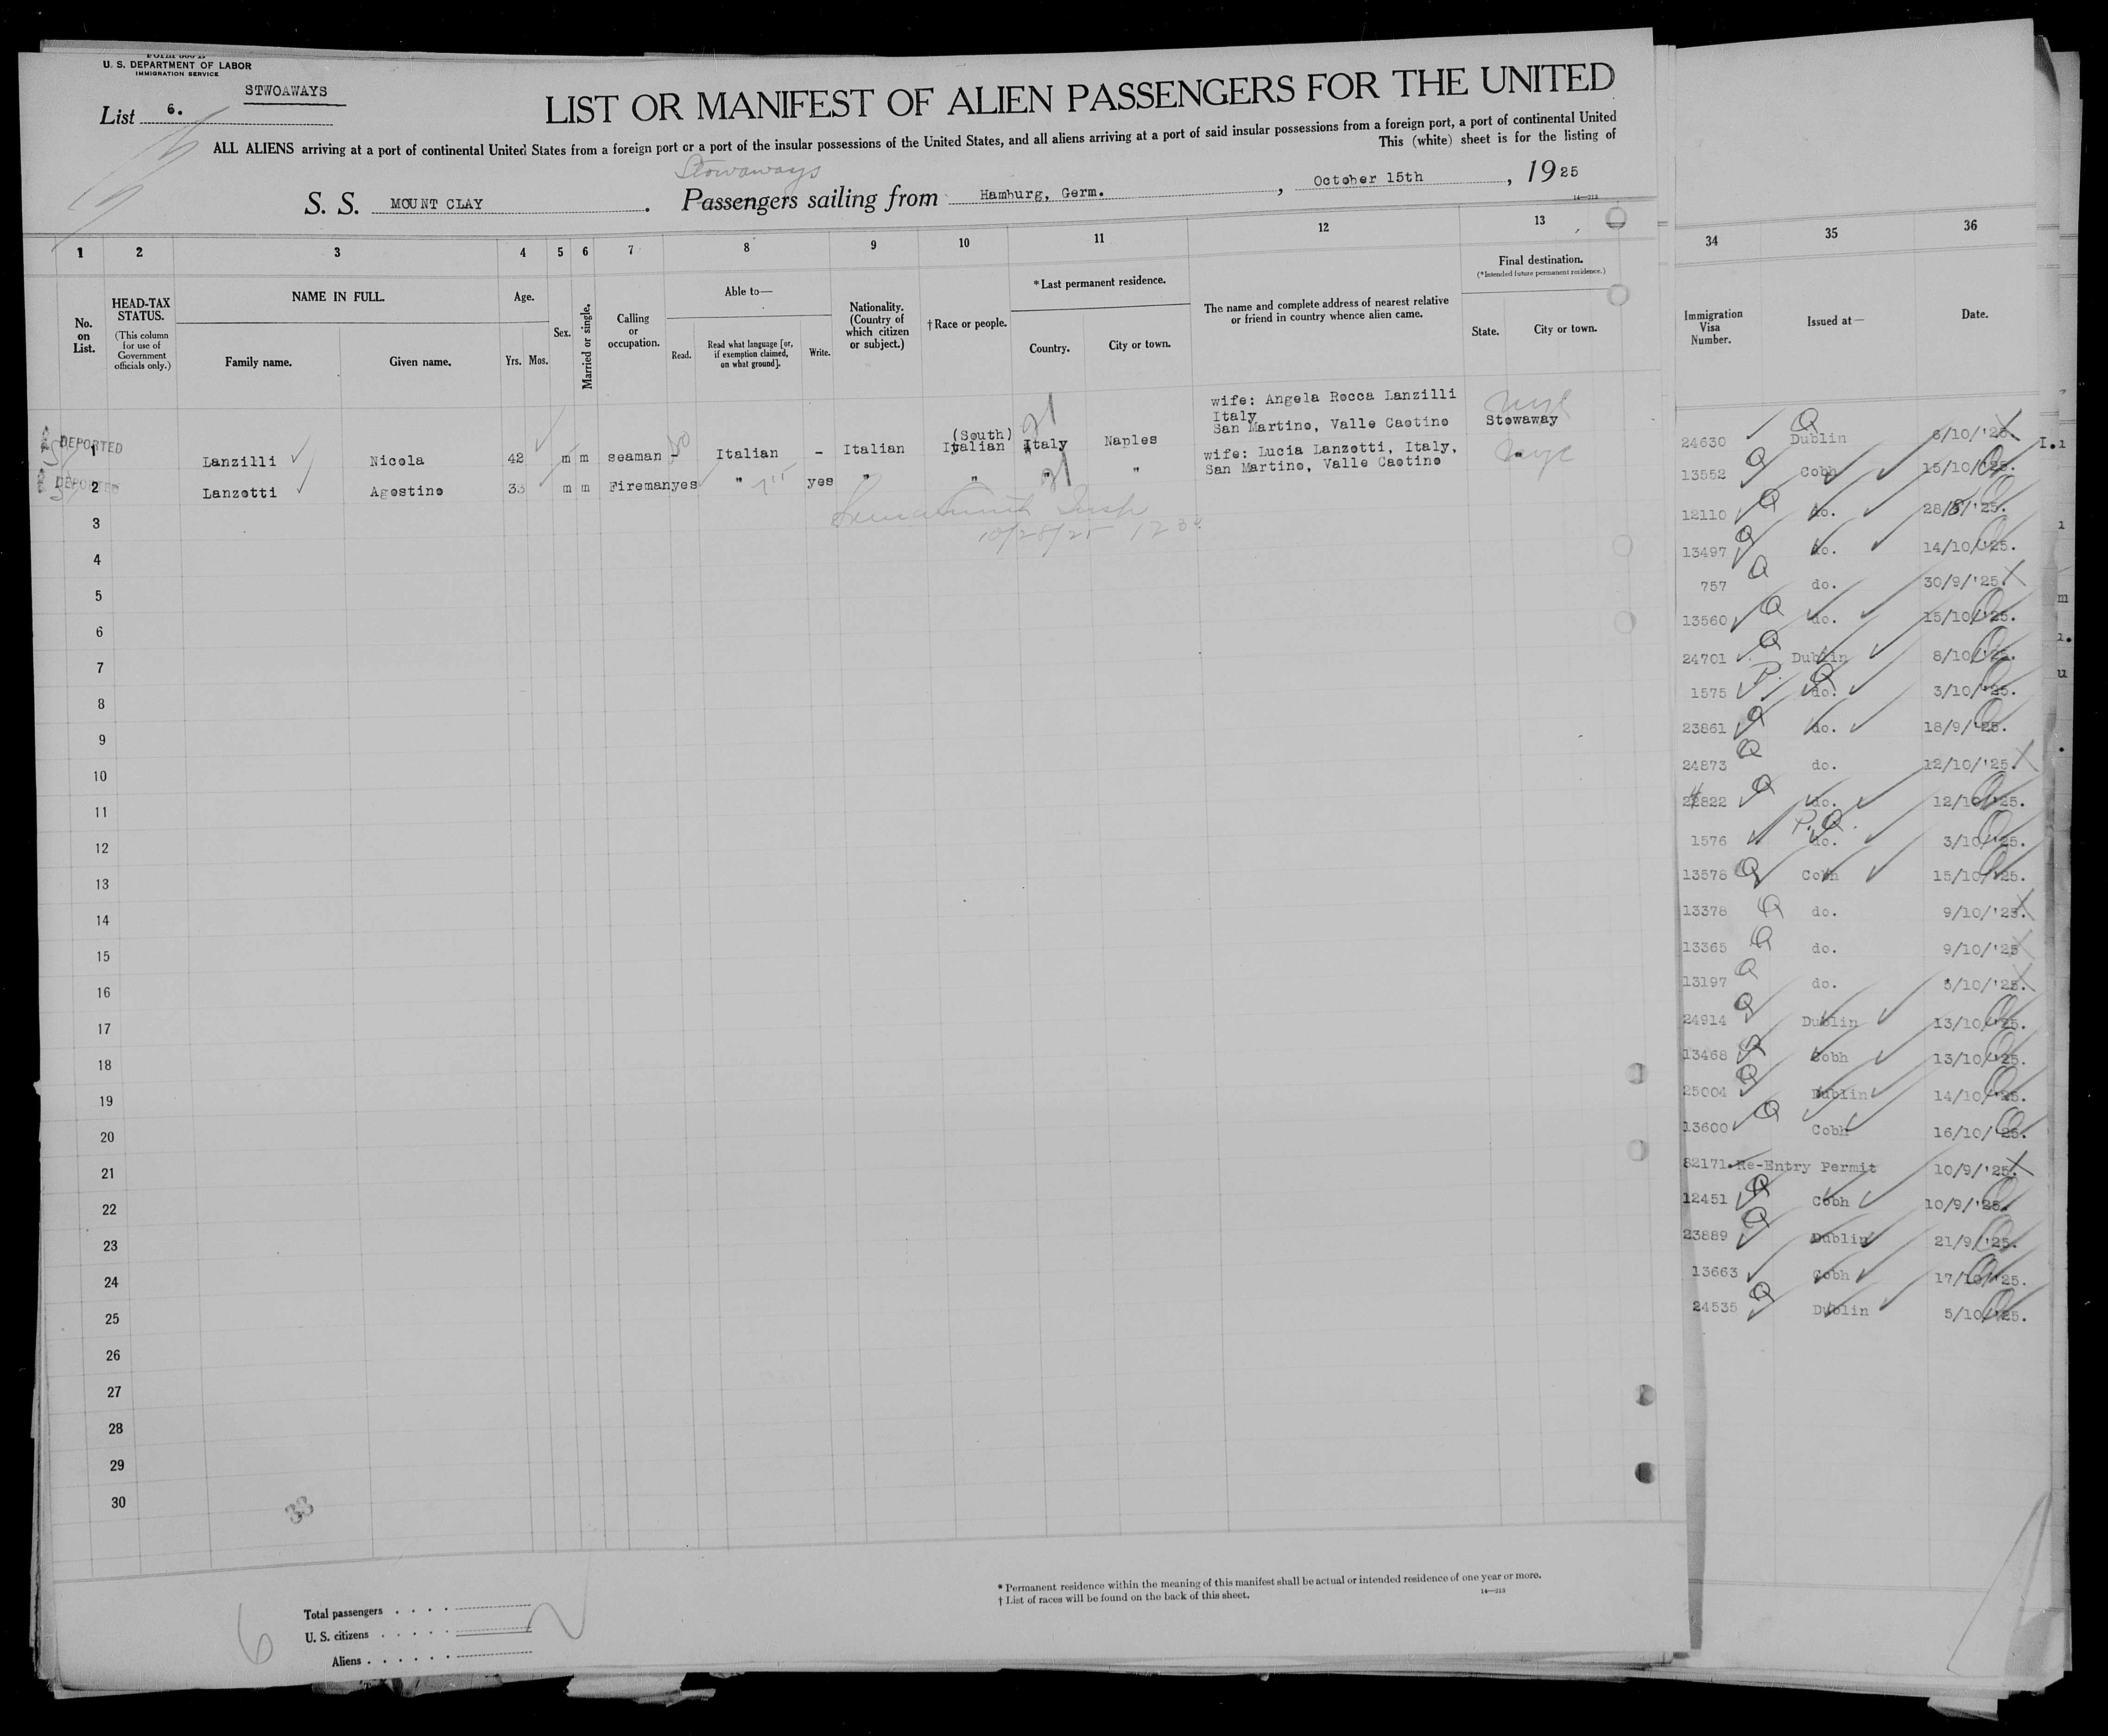 U. S. DEPARTMENT OF LABOR
IMMIGRATION SERVICE
STWOAWAYS
List 6.
LIST OR MANIFEST OF ALIEN PASSENGERS FOR THE UNITED
ALL ALIENS arriving at a port of continental United States from a foreign port or a port of the insular possessions of the United States, and all aliens arriving at a port of said insular possessions from a foreign port, a port of continental United
This (white) sheet is for the listing of
Stowaways
S. S. MOUNT CLAY. Passengers sailing from Hamburg, Germ., October 15th, 1925
14—213
1 2 3 4 5 6 7 8 9 10 11 12 13
No. on List.
HEAD-TAX STATUS.
(This column for use of Government officials only.)
NAME IN FULL.
Family name. Given name.
Age.
Yrs. Mos.
Sex.
Married or single.
Calling or occupation.
Able to—
Read.
Read what language [or, if exemption claimed, on what ground].
Write.
Nationality. (Country of which citizen or subject.)
† Race or people.
* Last permanent residence.
Country. City or town.
The name and complete address of nearest relative or friend in country whence alien came.
Final destination.
(* Intended future permanent residence.)
State. City or town.
DEPORTED
1 Lanzilli Nicola 42 m m seaman - no Italian - Italian (South) Italian Italy Naples
wife: Angela Rocca Lanzilli
Italy
San Martino, Valle Caotino
Stowaway
nyc
DEPORTED
2 Lanzotti Agostino 33 m m Fireman yes " yes " " " "
wife: Lucia Lanzotti, Italy,
San Martino, Valle Caotino
" nyc
10/28/25 12 30
3
4
5
6
7
8
9
10
11
12
13
14
15
16
17
18
19
20
21
22
23
24
25
26
27
28
29
30
33
* Permanent residence within the meaning of this manifest shall be actual or intended residence of one year or more.
† List of races will be found on the back of this sheet.
14—213
6
Total passengers
U. S. citizens
Aliens
34 35 36
Immigration Visa Number.
Issued at—
Date.
24630 Q Dublin 6/10/'25.
13552 Q Cobh 15/10/'25.
12110 Q do. 28/8/'25.
13497 Q do. 14/10/'25.
757 Q do. 30/9/'25.
13560 Q do. 15/10/'25.
24701 Q Dublin 8/10/'25.
1575 P. Q do. 3/10/'25.
23861 Q do. 18/9/'25.
24873 Q do. 12/10/'25.
24822 Q do. 12/10/'25.
1576 P. Q. do. 3/10/'25.
13578 Q Cobh 15/10/'25.
13378 Q do. 9/10/'25.
13365 Q do. 9/10/'25
13197 Q do. 5/10/'25.
24914 Q Dublin 13/10/'25.
13468 Q Cobh 13/10/'25.
25004 Q Dublin 14/10/'25.
13600 Q Cobh 16/10/'25.
82171 Re-Entry Permit 10/9/'25.
12451 Q Cobh 10/9/'25.
23889 Q Dublin 21/9/'25.
13663 Cobh 17/10/'25.
24535 Q Dublin 5/10/'25.